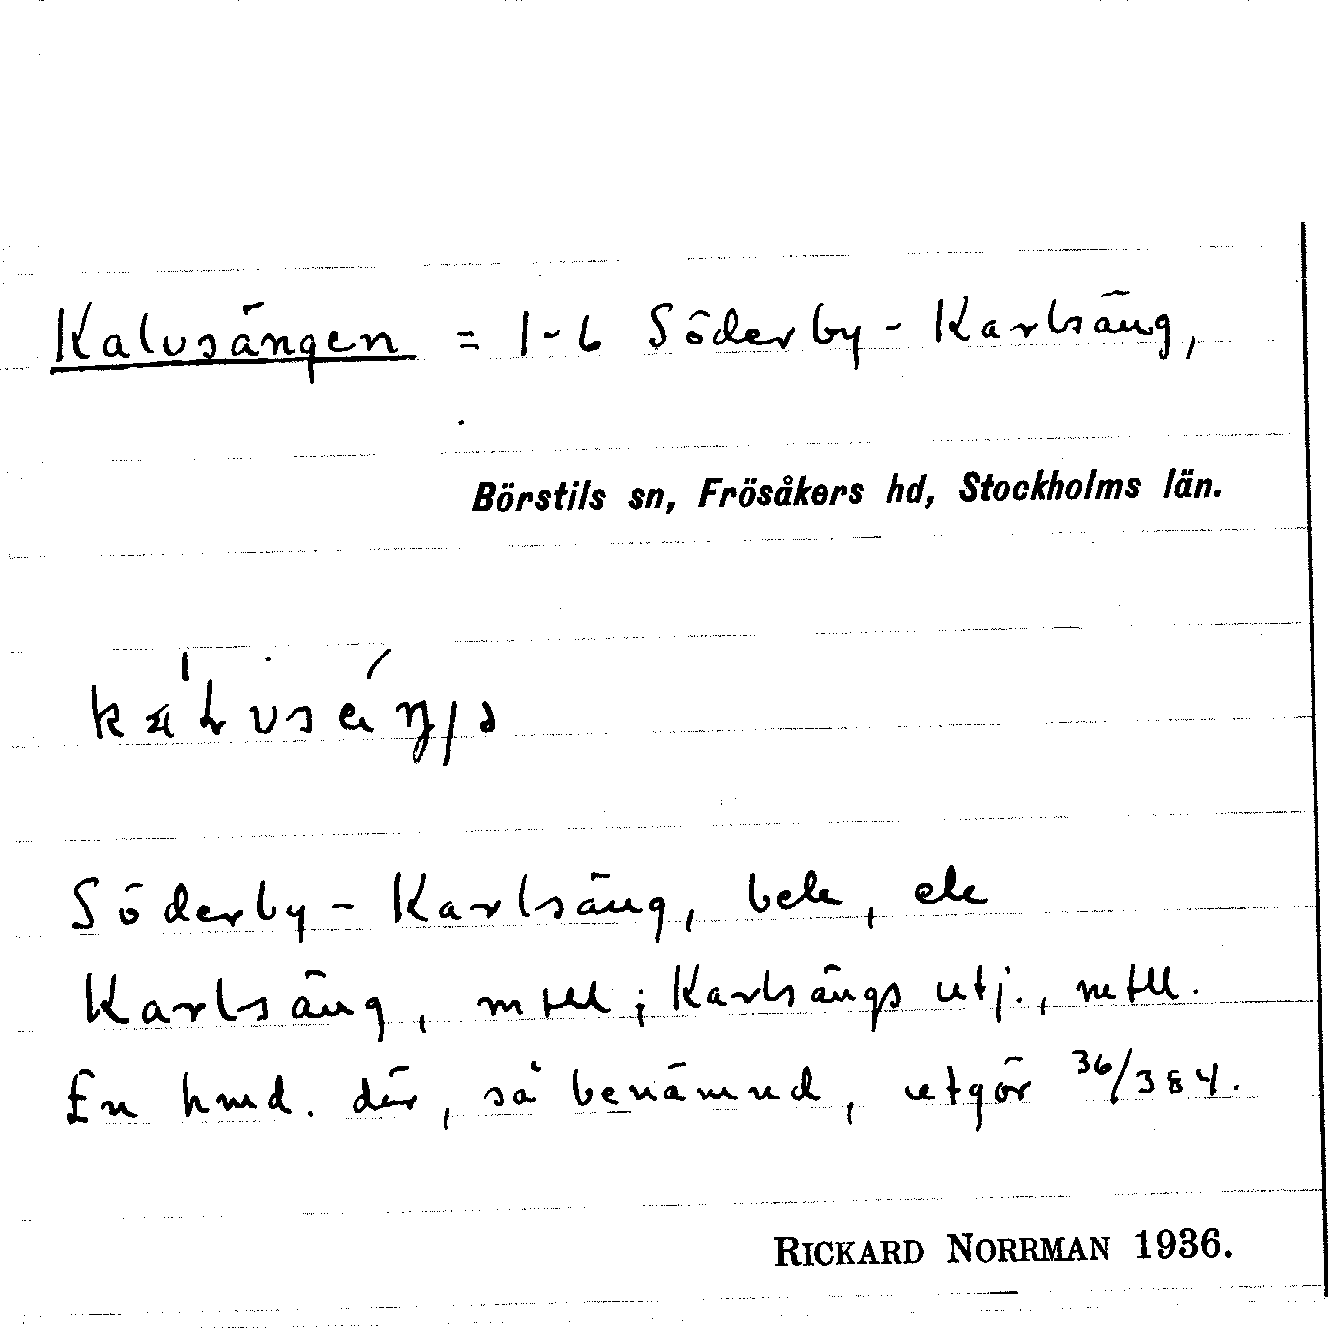 Kalvsängen = 1-6 Söderby-Karlsäng,
Börstils sn, Frösåkers hd, Stockholms län.
Söderby-Karlsäng, bek, ek
Karlsäng, mtll; Karlsängs utj., mtll.
En hmd. där, så benämnd, utgör 36/384.
RICKARD NORRMAN 1936.